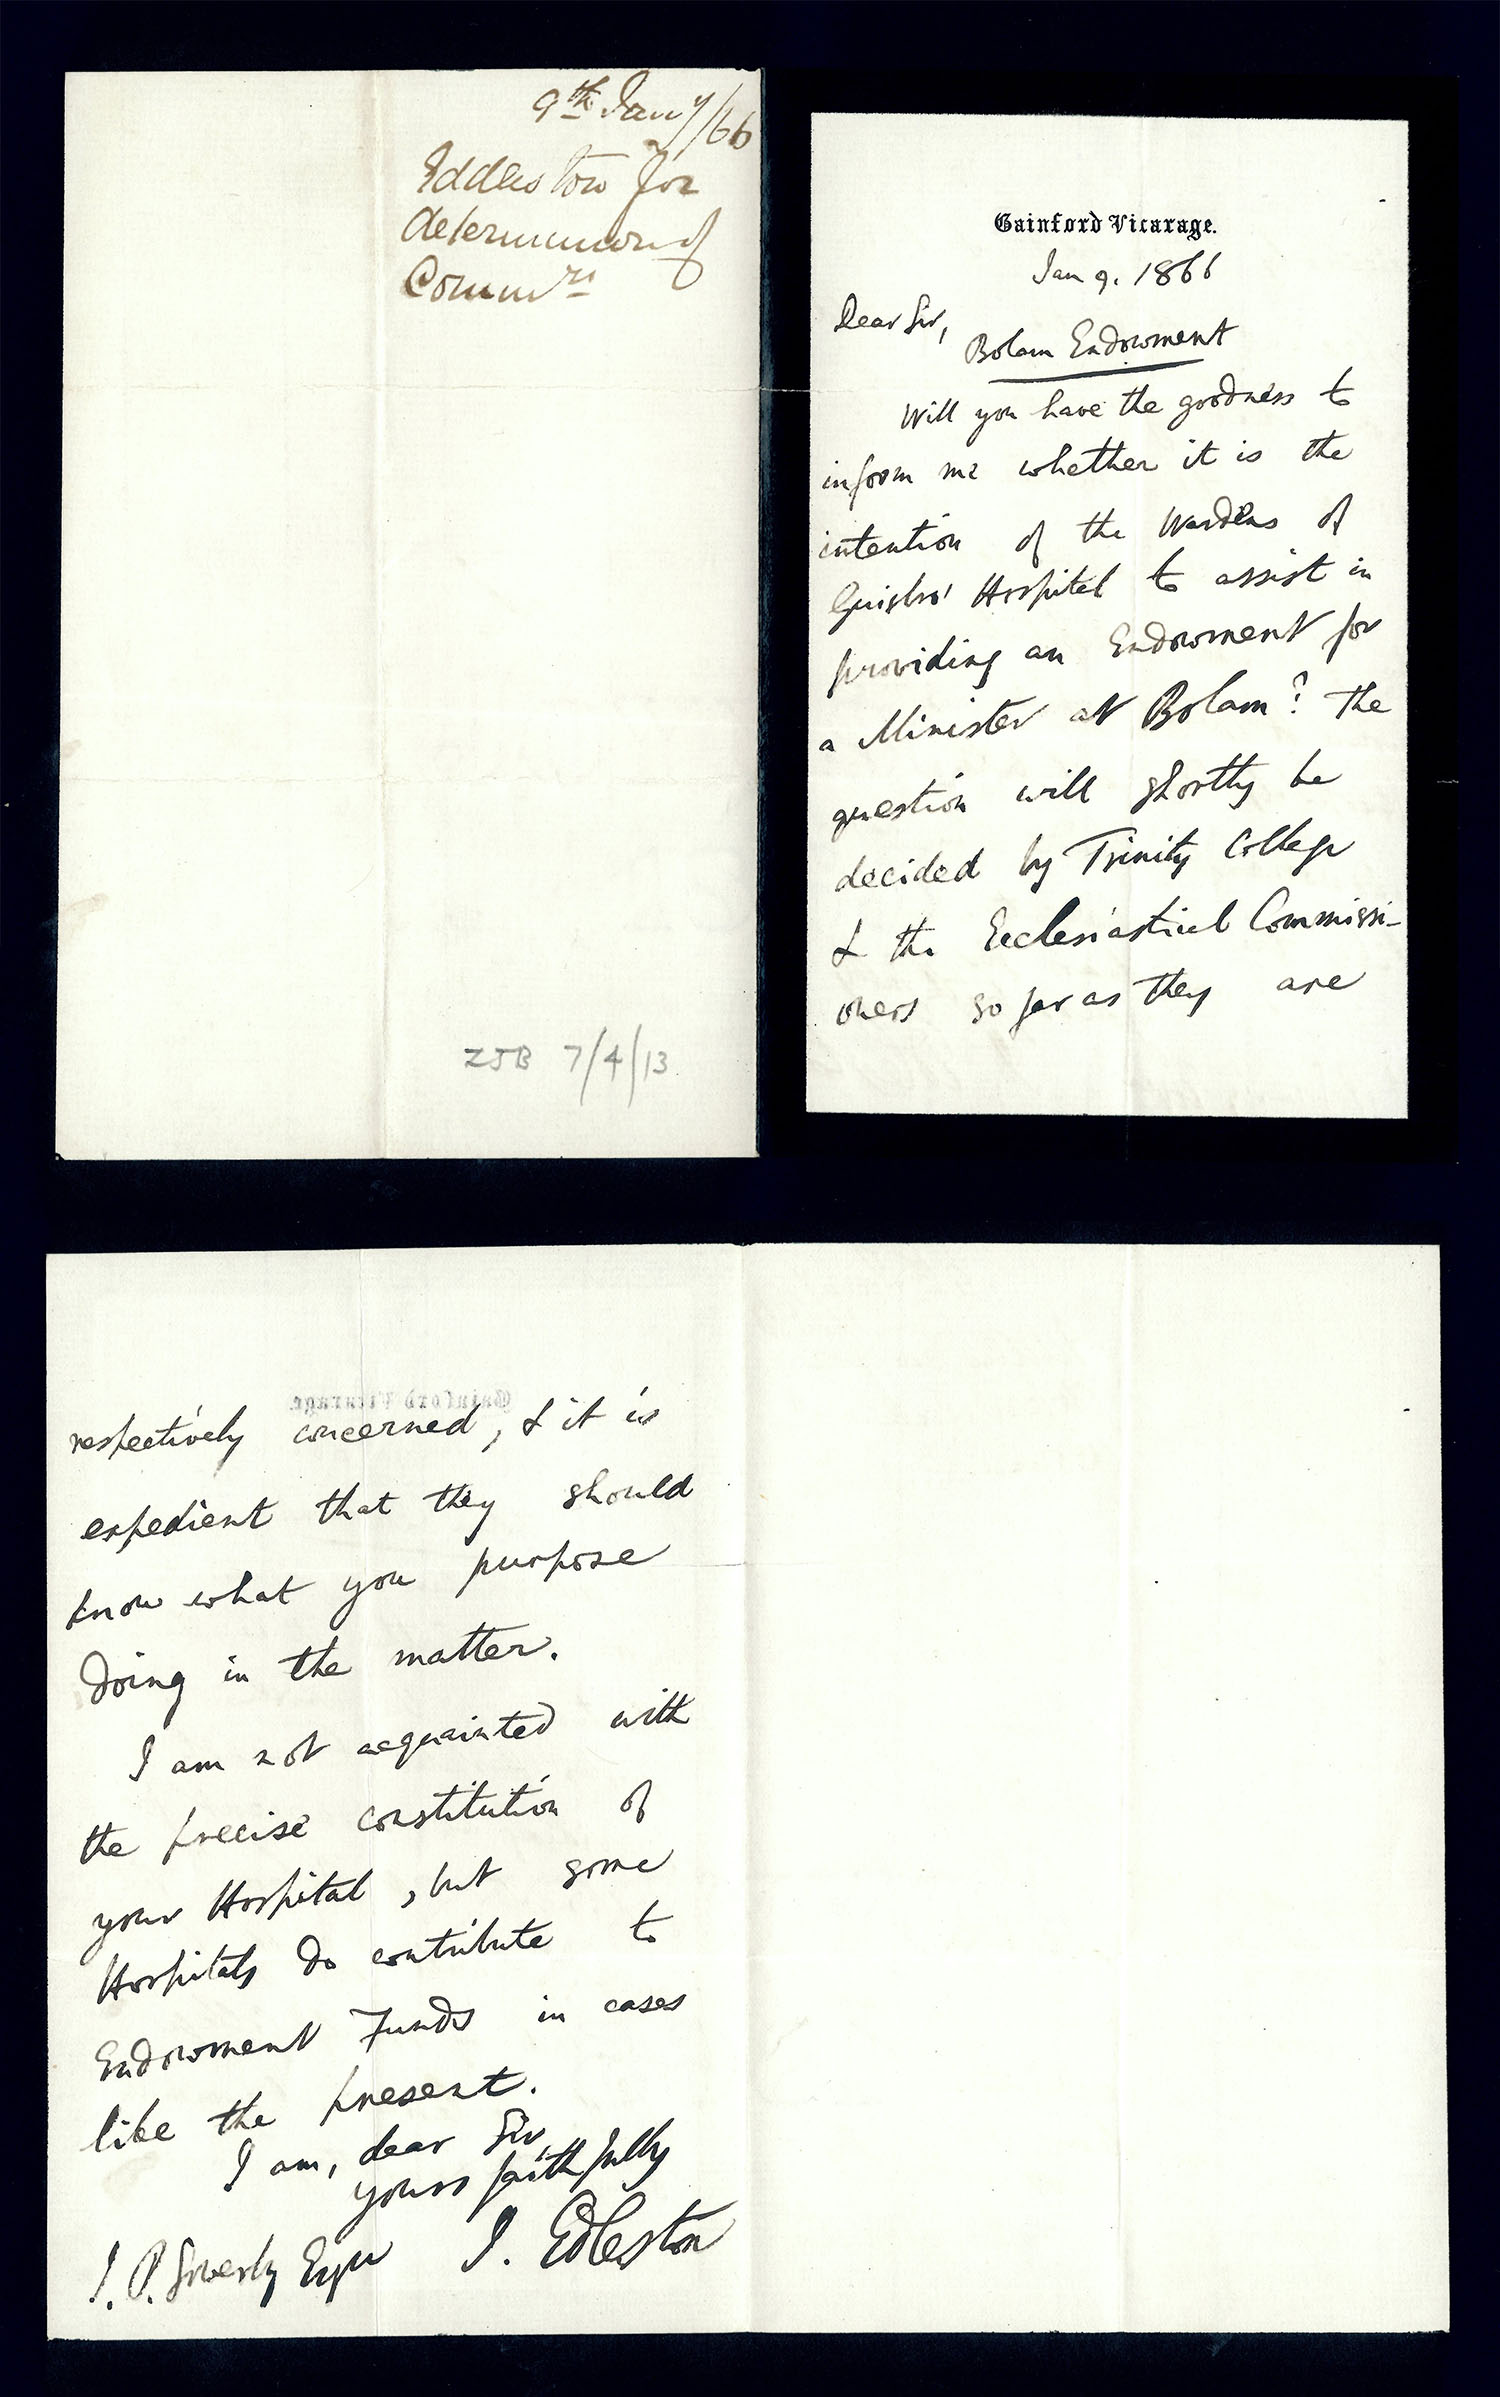 9th Jany/66
Eddleston for
determination of
Commrs
ZJB 7/4/13
Gainford Vicarage.
Jan 9. 1866
Dear Sir,
Bolam Endowment
Will you have the goodness to
inform me whether it is the
intention of the Wardens of
Guisbro' Hospital to assist in
providing an Endowment for
a Minister at Bolam? The
question will shortly be
decided by Trinity College
& the Ecclesiastical Commissi-
oners so far as they are
respectively concerned, & it is
expedient that they should
know what you purpose
doing in the matter.
I am not acquainted with
the precise constitution of
your Hospital, but some
Hospitals do contribute to
Endowment Funds in cases
like the present.
I am, dear Sir,
yours faithfully
J. Edleston
J. P. Sowerby Esqre